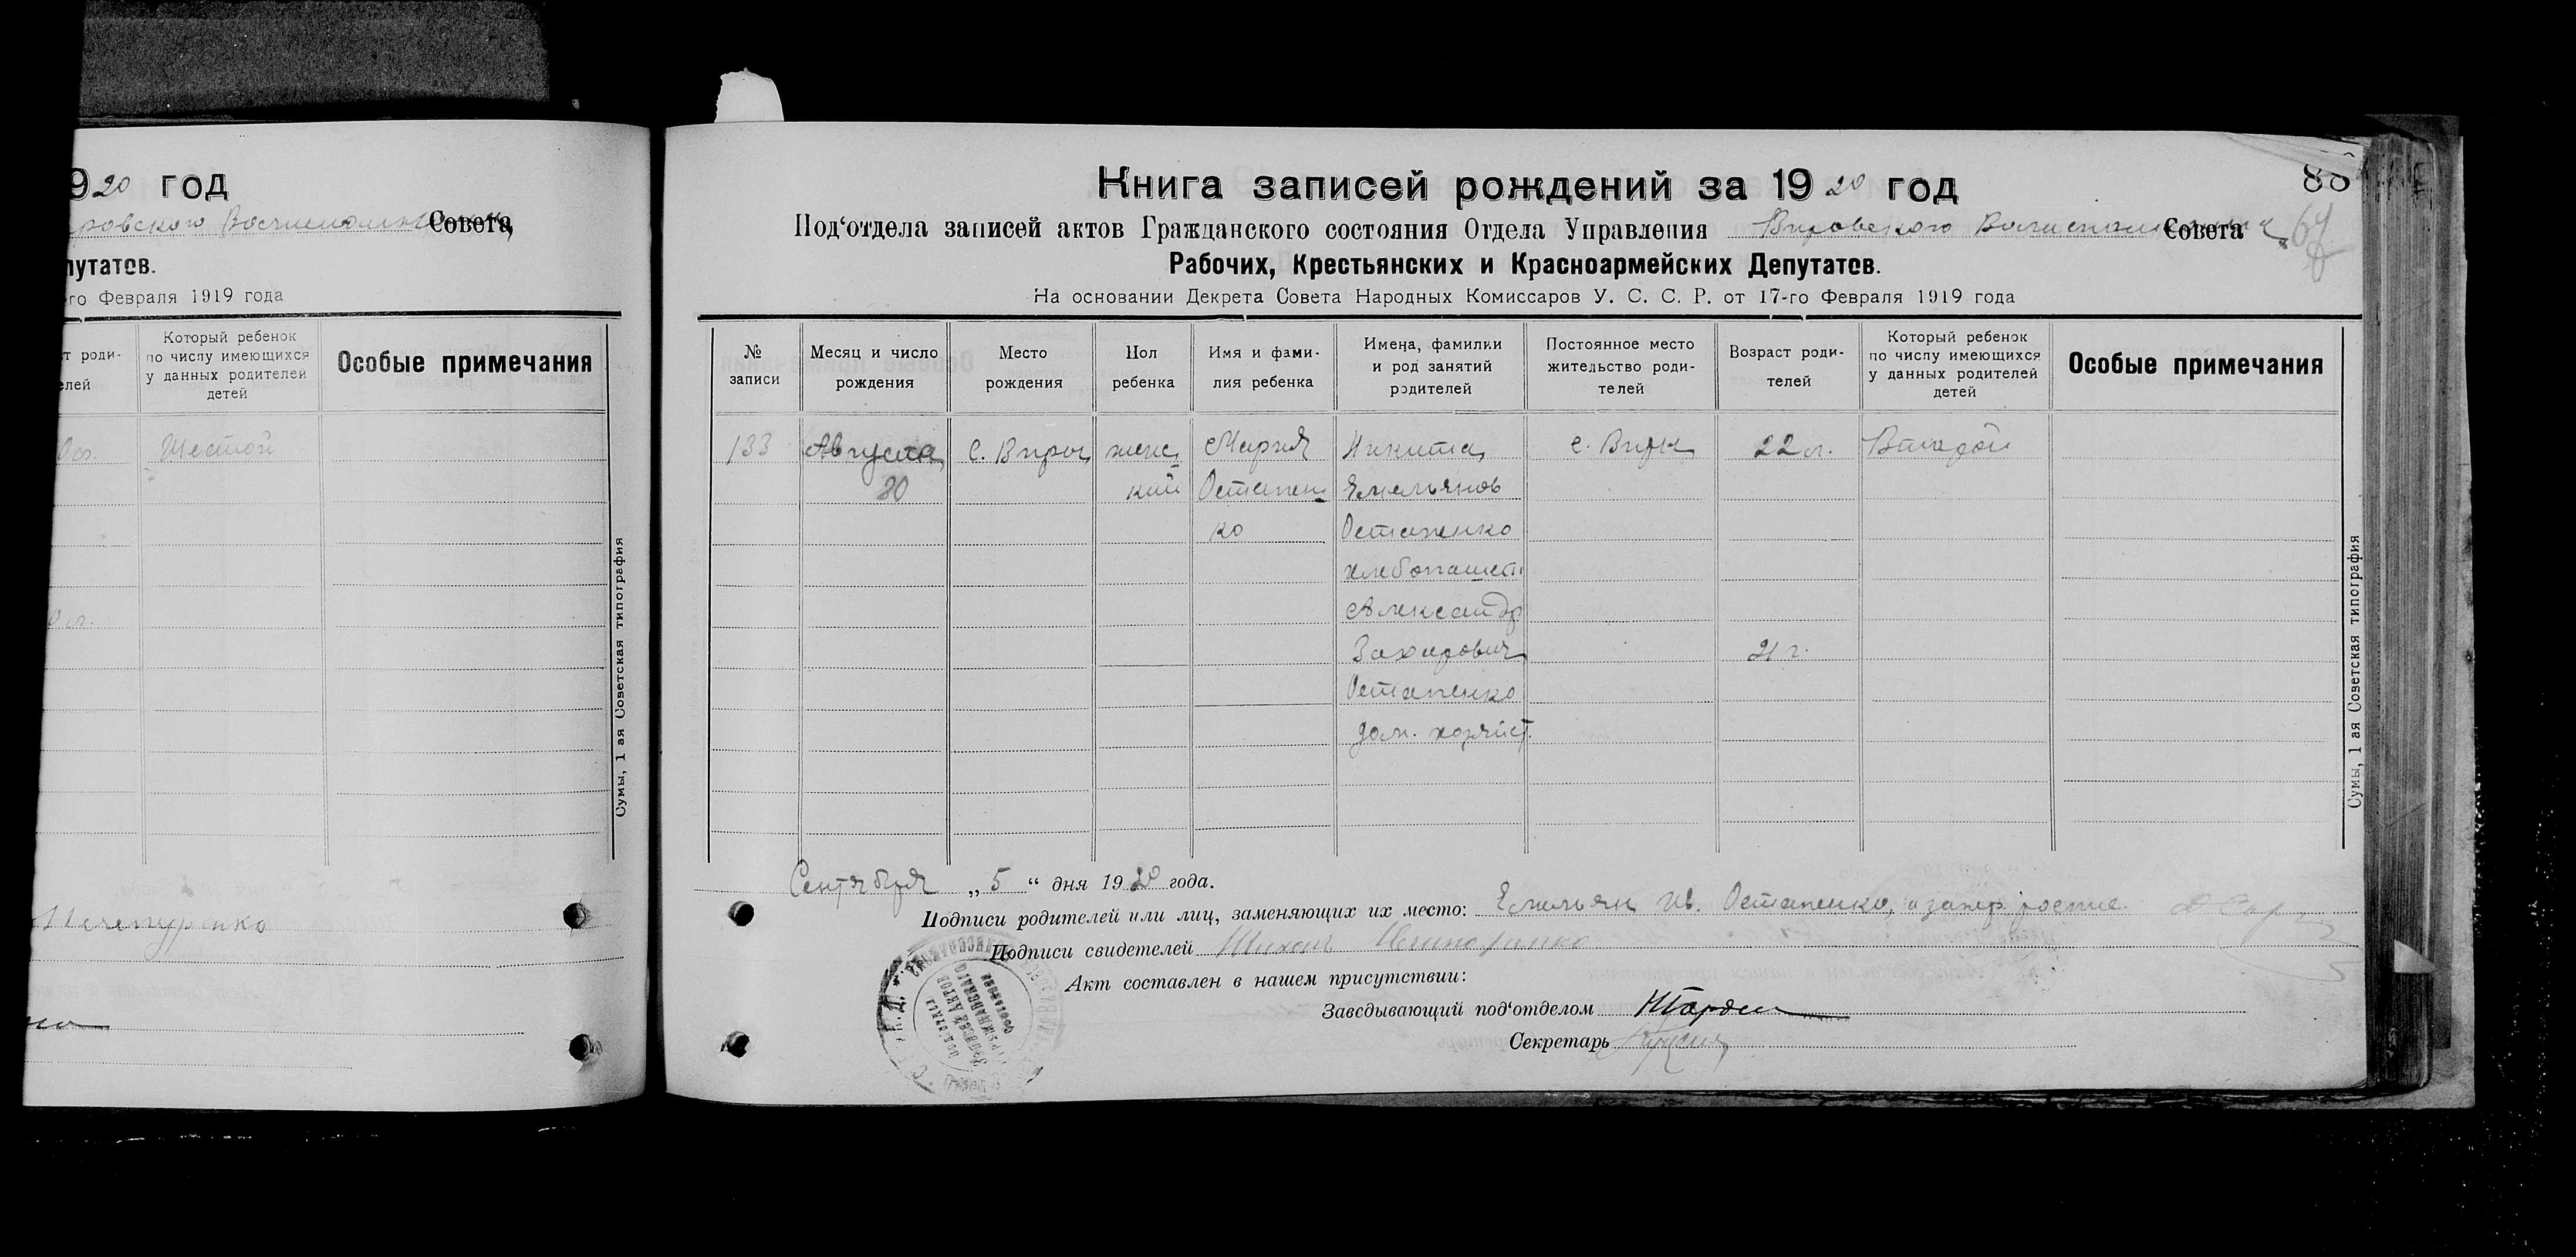 920 год
ровского Волисполкома Совета
путатов.
го Февраля 1919 года
т роди-
елей
Который ребенок
по числу имеющихся
у данных родителей
детей
Особые примечания
Шестой
Сумы, 1 ая Советская типография
Книга записей рождений за 1920 год
88
Под‘отдела записей актов Гражданского состояния Отдела Управления Вировского Волисполкома Совета
67
Рабочих, Крестьянских и Красноармейских Депутатов.
На основании Декрета Совета Народных Комиссаров У. С. С. Р. от 17-го Февраля 1919 года
№
записи
Месяц и число
рождения
Место
рождения
Пол
ребенка
Имя и фами-
лия ребенка
Имена, фамилии
и род занятий
родителей
Постоянное место
жительство роди-
телей
Возраст роди-
телей
Который ребенок
по числу имеющихся
у данных родителей
детей
Особые примечания
133 Августа с. Виры женс Мария Никита с. Виры 22 л. Второй
30 кий Остапен Емельянов
ко Остапенко
хлебопашест
Александр
Захарович 21 г.
Остапенко
дом. хозяйст.
Сумы, 1 ая Советская типография
Сентября „5“ дня 1920 года.
Подписи родителей или лиц, заменяющих их место: Емельян Ив. Остапенко,
Подписи свидетелей
Акт составлен в нашем присутствии:
Заведывающий под‘отделом
Секретарь